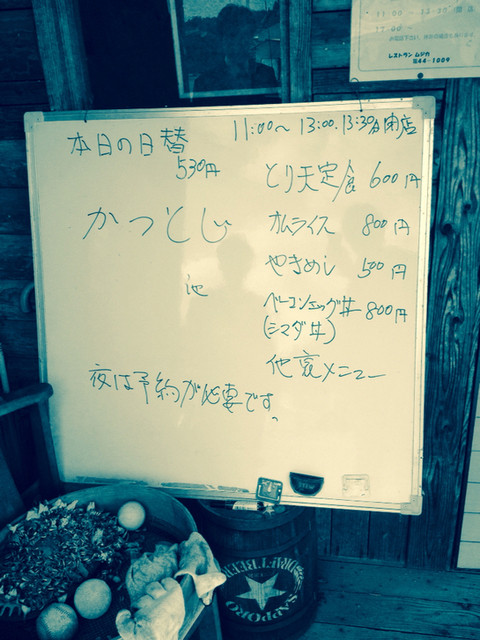 レストラン ムジカ
44-1009
本日の日替
530円
かつとじ
他
夜は予約が必要です。
11:00～13:00. 13:30閉店
とり天定食 600円
オムライス 800円
やきめし 500円
ベーコンエッグ丼 800円
(シマダ丼)
他裏メニュー
DRAFT BEER
SAPPORO